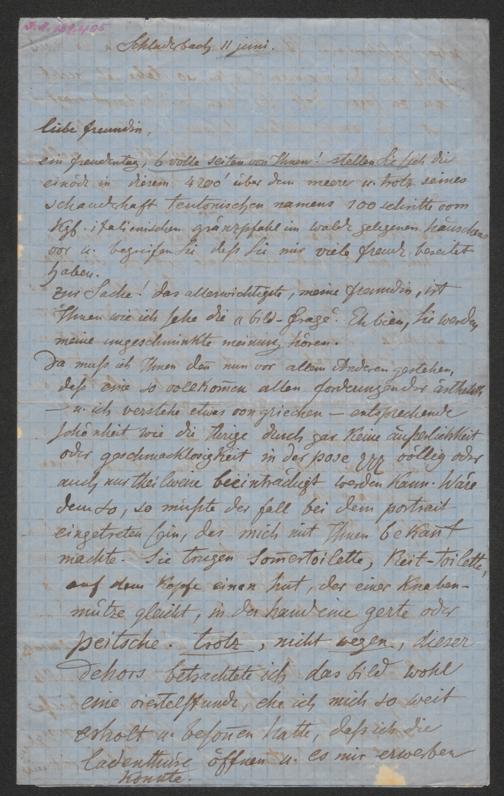 Schluderbach, 11 juni.
liebe freundin,
ein freudentag, 6 volle seiten von Ihnen! stellen Sie sich die
einöde in diesem 4200' über dem meere u. trotz seines
schauderhaft teutonischen namens 100 schritte vom
Kgl. italienischen gränzpfahl im walde gelegenen häuschens
vor u. begreifen Sie, daß Sie mir viele freude bereitet
haben.
zur Sache! das allerwichtigste, meine freundin, ist
Ihnen wie ich sehe die "bild-frage". Eh bien, Sie werden
meine ungeschminkte meinung hören.
Da muß ich Ihnen den nun vor allem Anderen gestehen,
daß eine so vollkomen allen forderungen der ästhetik
– u. ich verstehe etwas von griechen – entsprechende
schönheit wie die Ihrige durch gar keine äußerlichkeit
oder geschmacklosigkeit in der pose völlig oder
auch nur theilweise beeinträchtigt werden kann. Wäre
dem so, so müßte der fall bei dem portrait
eingetreten sein, das mich mit Ihnen bekant
machte. Sie trugen Somertoilette, Reit-toilette,
auf dem Kopfe einen hut, der einer Knaben-
mütze gleicht, in der hand eine gerte oder
peitsche. trotz, nicht wegen, dieser
dehors betrachtete ich das bild wohl
eine viertelstunde, ehe ich mich so weit
erholt u. besonen hatte, daß ich die
ladenthüre öffnen u. es mir erwerben
konnte.